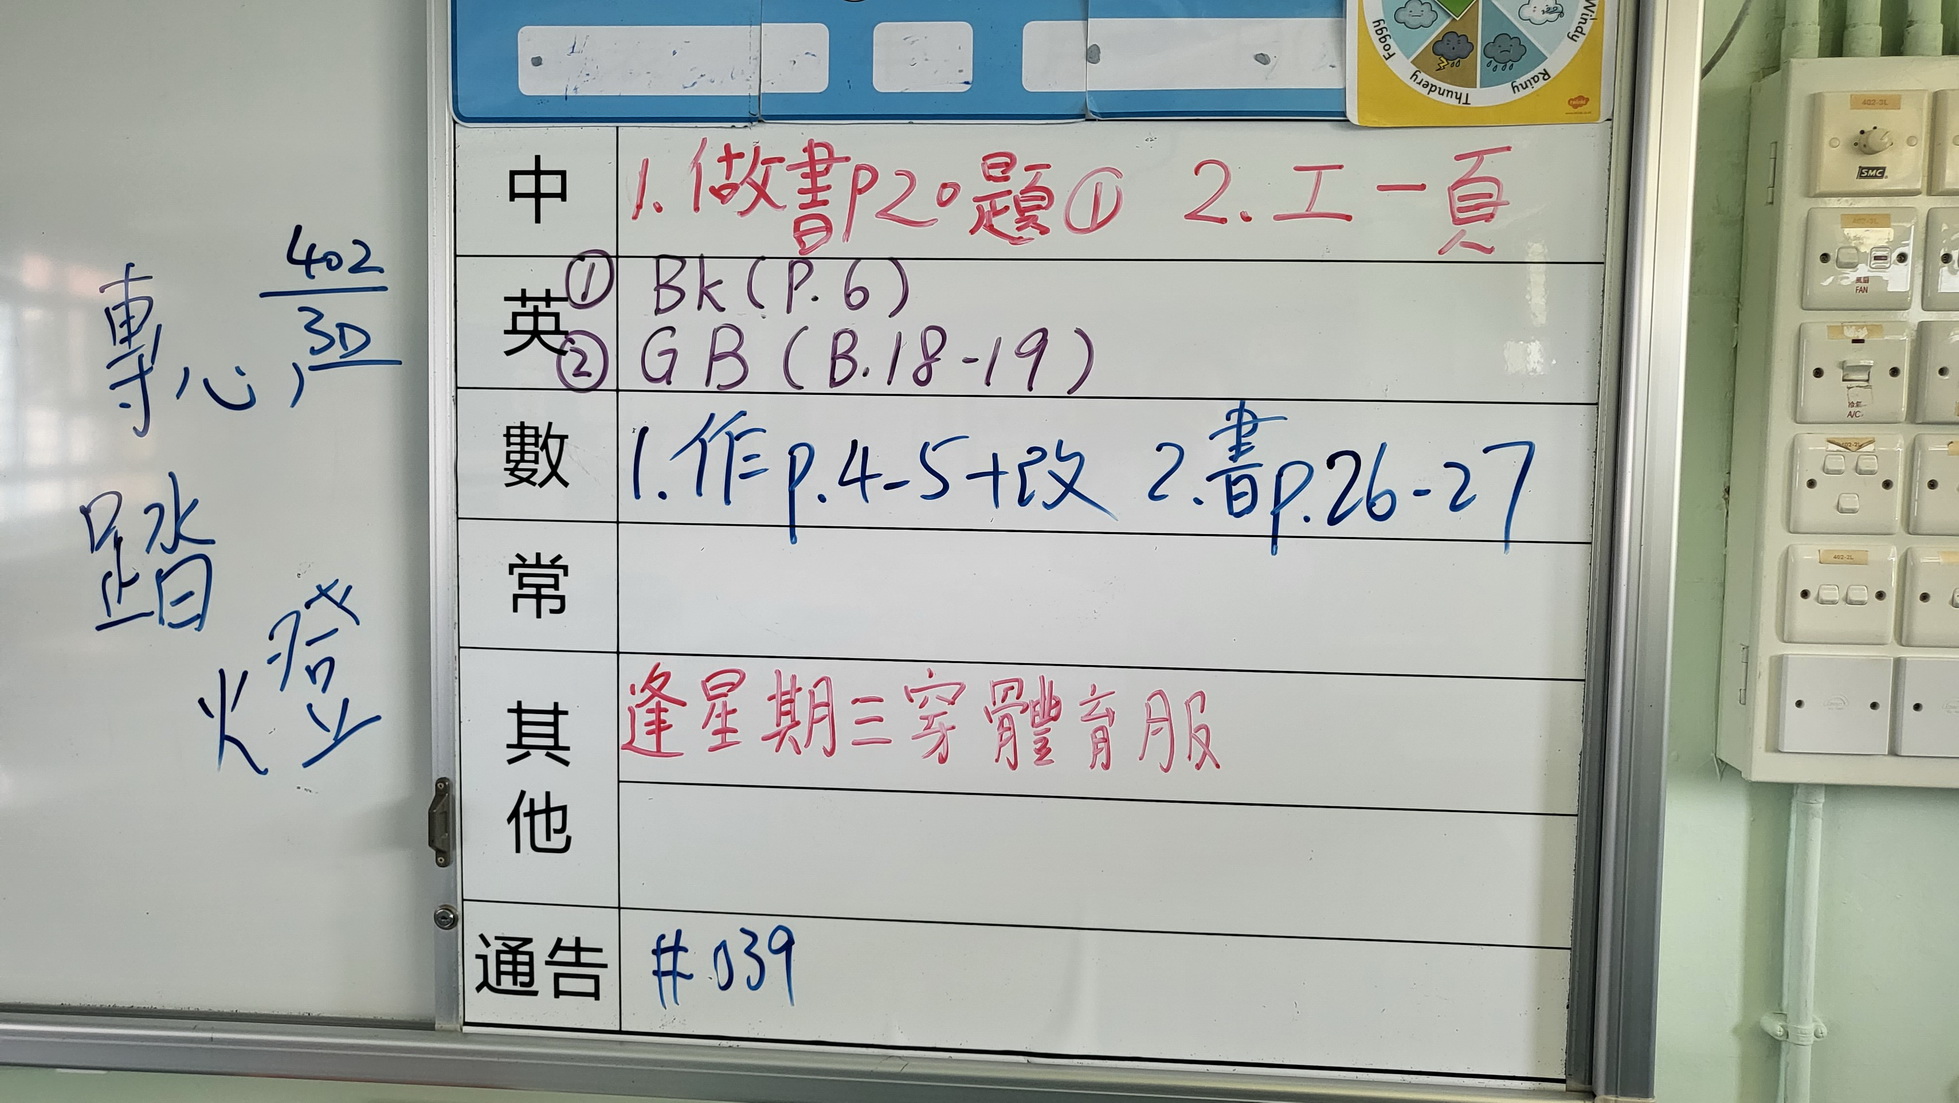 Foggy
Thundery
Rainy
Windy
中
1. 做書p20題① 2. 工一頁
英
① Bk (P. 6)
② GB (B.18-19)
數
1. 作p.4-5+改 2. 書p.26-27
常
其他
逢星期三穿體育服
通告
# 039
402
3D
專心,
踏
燈
402-2L
SMC
402-2L
風扇
FAN
A/C
402-2L
402-2L